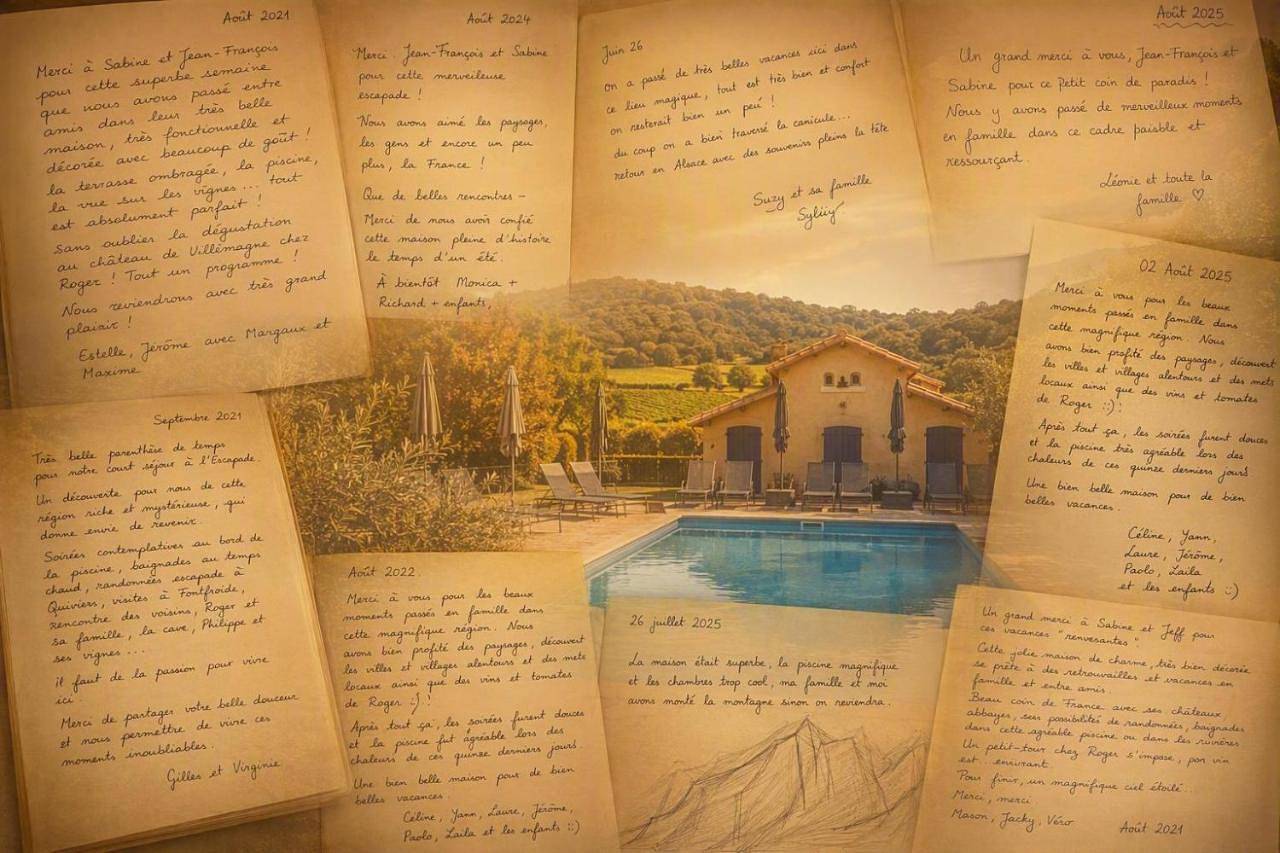 Août 2021
Merci à Sabine et Jean-François
pour cette superbe semaine
que nous avons passé entre
amis dans leur très belle
maison, très fonctionnelle et
décorée avec beaucoup de goût !
la terrasse ombragée, la piscine,
la vue sur les vignes ... tout
est absolument parfait !
Sans oublier la dégustation
au château de Villemagne chez
Roger ! Tout un programme !
Nous reviendrons avec très grand
plaisir !
Estelle, Jérôme avec Margaux et
Maxime
Août 2024
Merci Jean-François et Sabine
pour cette merveilleuse
escapade !
Nous avons aimé les paysages,
les gens et encore un peu
plus, la France !
Que de belles rencontres -
Merci de nous avoir confié
cette maison pleine d'histoire
le temps d'un été.
À bientôt Monica +
Richard + enfants,
Juin 26
on a passé de très belles vacances ici dans
ce lieu magique, tout est très bien et confort
on resterait bien un peu !
du coup on a bien traversé la canicule...
retour en Alsace avec des souvenirs pleins la tête
Suzy et sa famille
Août 2025
Un grand merci à vous, Jean-François et
Sabine pour ce Petit coin de paradis !
Nous y avons passé de merveilleux moments
en famille dans ce cadre paisble et
ressourçant.
Léonie et toute la
famille ♡
02 Août 2025
Merci à vous pour les beaux
moments passés en famille dans
cette magnifique région. Nous
avons bien profité des paysages, découvert
les villes et villages alentours et des mets
locaux ainsi que des vins et tomates
de Roger :) !
Après tout ça, les soirées furent douces
et la piscine très agréable lors des
chaleurs de ces quinze derniers jours
Une bien belle maison pour de bien
belles vacances.
Céline, Yann,
Laure, Jérôme,
Paolo, Laila
et les enfants :)
Septembre 2021
Très belle parenthèse de temps
pour notre court séjour à l'Escapade.
Un découverte pour nous de cette
région riche et mystérieuse, qui
donne envie de revenir.
Soirées contemplatives au bord de
la piscine, baignades au temps
chaud, randonnées escapade à
Quiviers, visites à Fontfroide,
rencontre des voisins, Roger et
sa famille, la cave, Philippe et
ses vignes ...
il faut de la passion pour vivre
ici.
Merci de partages votre belle douceur
et nous permettre de vivre ces
moments inoubliables.
Gilles et Virginie
Août 2022
Merci à vous pour les beaux
moments passés en famille dans
cette magnifique région. Nous
avons bien profité des paysages, découvert
les villes et villages alentours et des mets
locaux ainsi que des vins et tomates
de Roger :) !
Après tout ça, les soirées furent douces
et la piscine fut agréable lors des
chaleurs de ces quinze derniers jours.
Une bien belle maison pour de bien
belles vacances.
Céline, Yann, Laure, Jérôme,
Paolo, Laila et les enfants :)
26 juillet 2025
La maison était superbe, la piscine magnifique
et les chambres trop cool, ma famille et moi
avons monté la montagne sinon on reviendra.
Un grand merci à Sabine et Jeff pour
ces vacances "renversantes".
Cette jolie maison de charme, très bien décorée
se prête à des retrouvailles et vacances en
famille et entre amis.
Beau coin de France avec ses châteaux,
abbayes, ses possibilités de randonnées, baignades
dans cette agréable piscine ou dans les rivières
Un petit-tour chez Roger s'impose, por vin
est... enivrant.
Pour finir, un magnifique ciel étoilé...
Merci, merci
Mason, Jacky, Véro
Août 2021